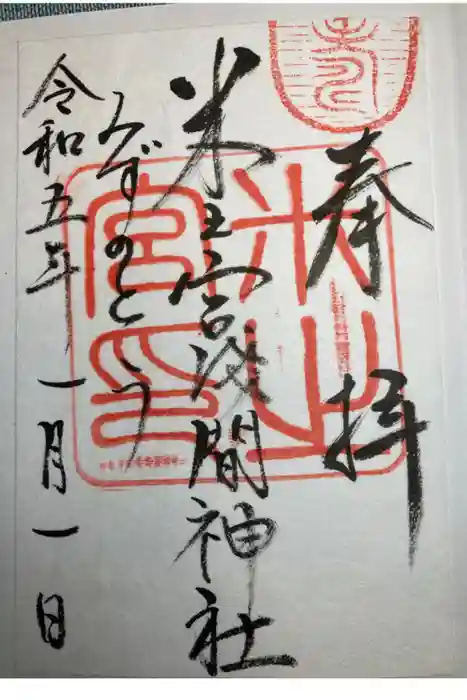 奉拝
米之宮浅間神社
みずのとう
令和五年一月一日